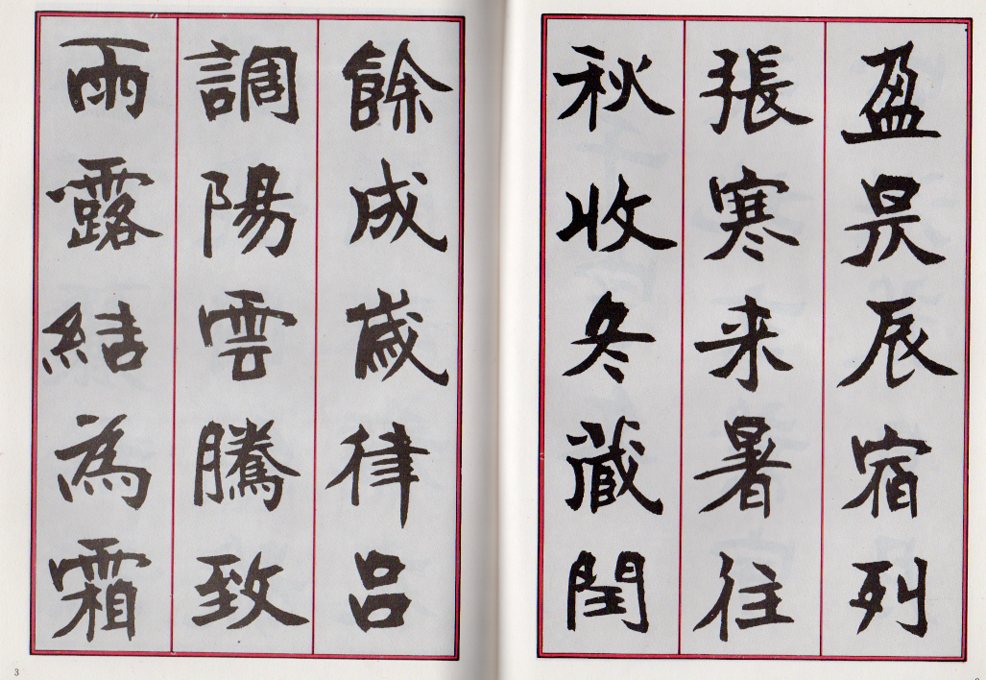 盈昃辰宿列
張寒来暑往
秋收冬蔵閏
餘成歳律吕
調陽雲騰致
雨露結為霜
3